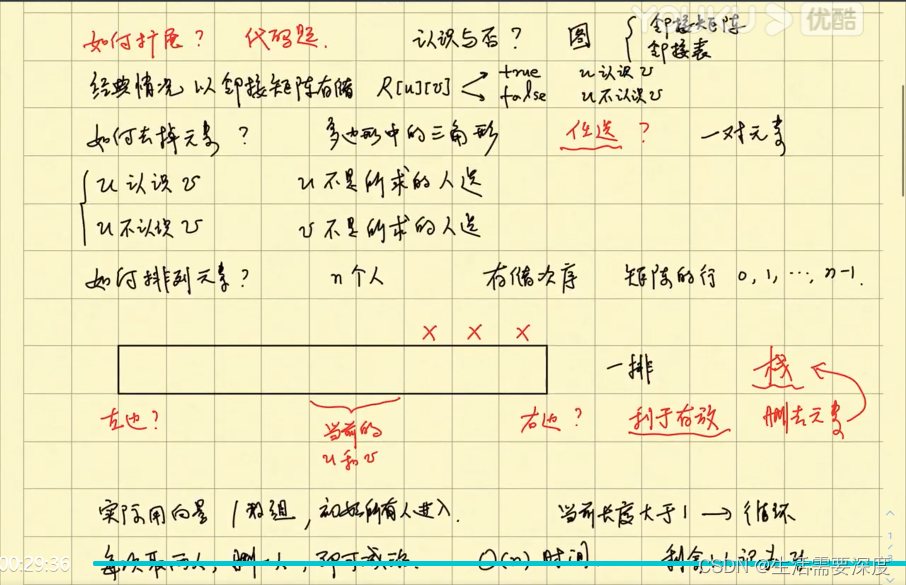 YOUKU 优酷
如何扩展？ 代码题. 认识与否？ 图 { 邻接矩阵
邻接表
经典情况 以邻接矩阵存储 R[u][v] true u认识v
false u不认识v
如何去掉元素？ 多边形中的三角形 任选？ 一对元素
u 认识 v u 不是所求的人选
u 不认识 v v 不是所求的人选
如何排列元素？ n个人 存储次序 矩阵的行 0, 1, ..., n-1.
× × ×
一排 栈
左边？ 当前的 右边？ 利于存放 删去元素
u 和 v
实际用向量 / 数组，初始所有人进入. 当前长度大于1 → 循环
00:29:36 每次取两人，删一人，即可 O(n) 时间
1/3
CSDN @生活需要深度